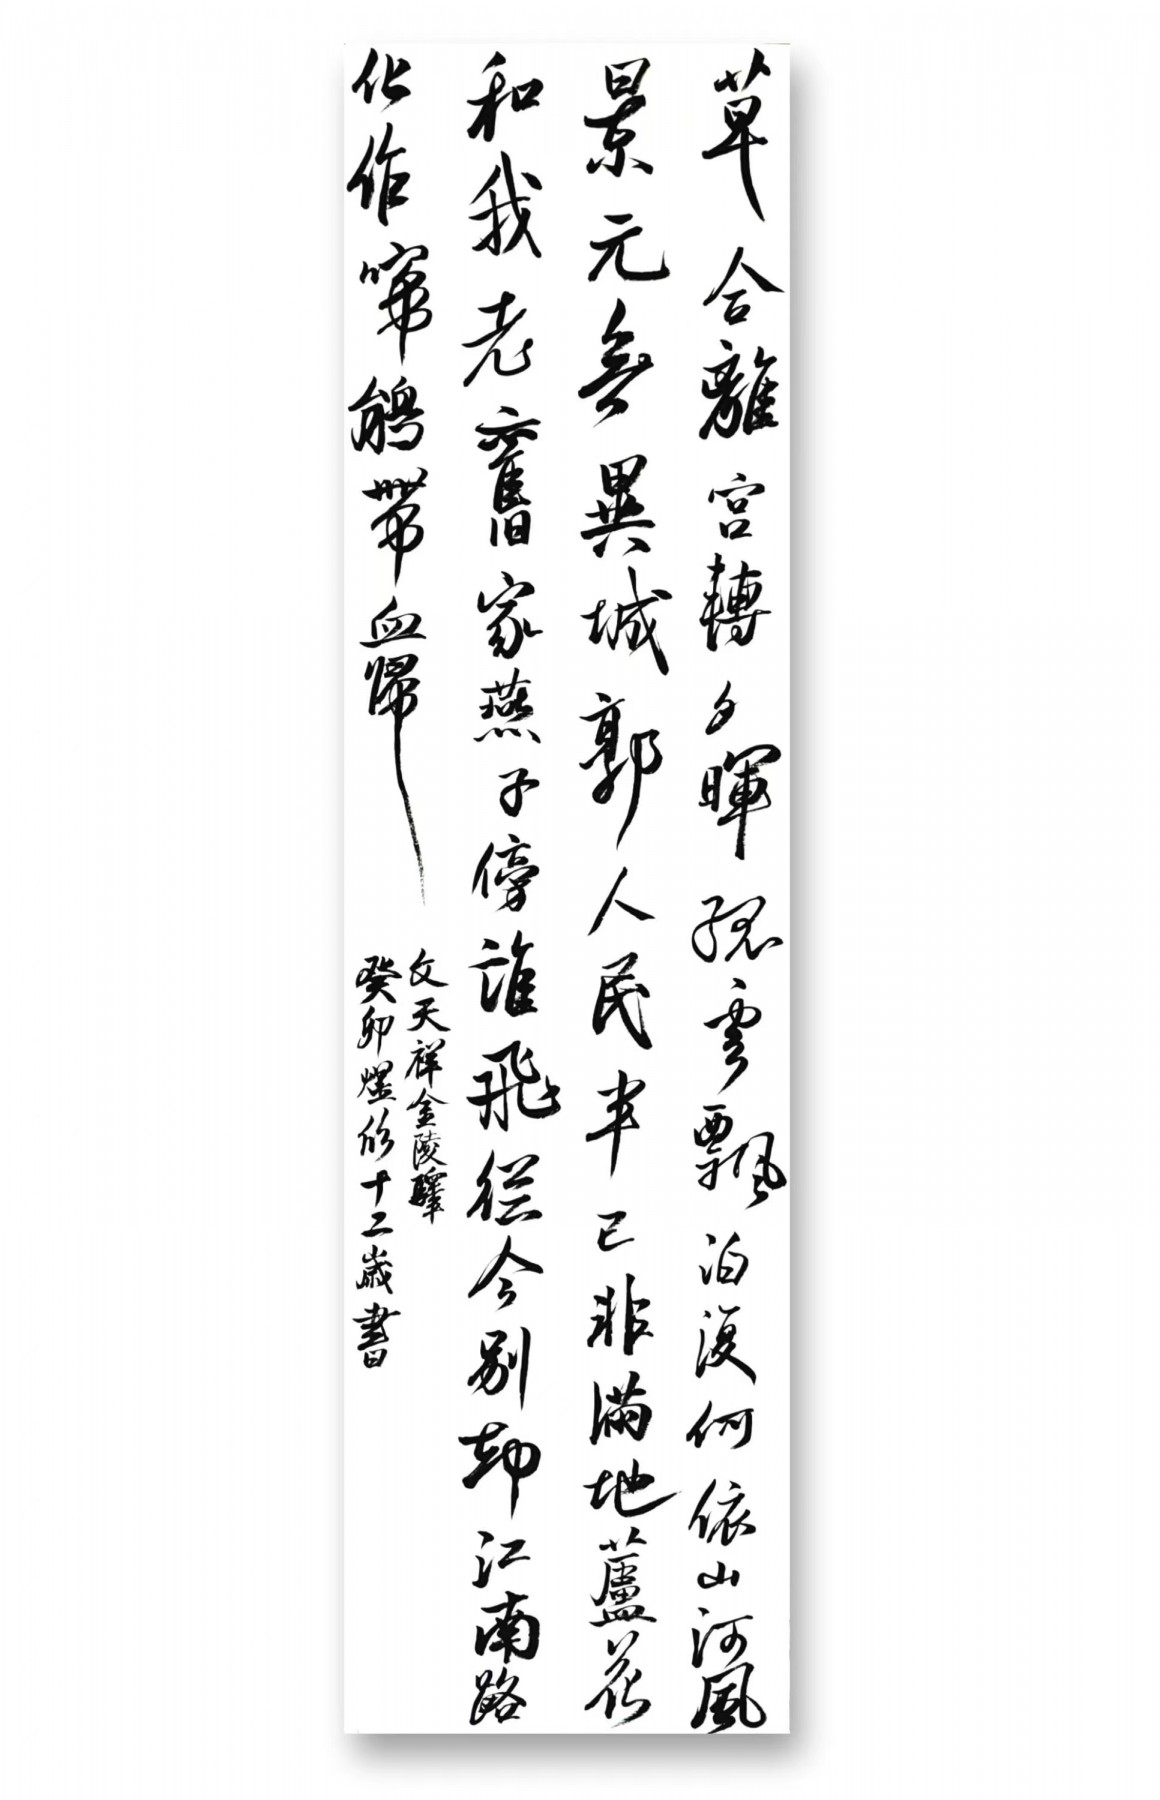 草合離宮轉夕暉孤雲飄泊復何依山河風
景元無異城郭人民半已非滿地蘆花
和我老舊家燕子傍誰飛從今別却江南路
化作啼鵑帶血歸
文天祥金陵驛
癸卯煜欣十二歲書